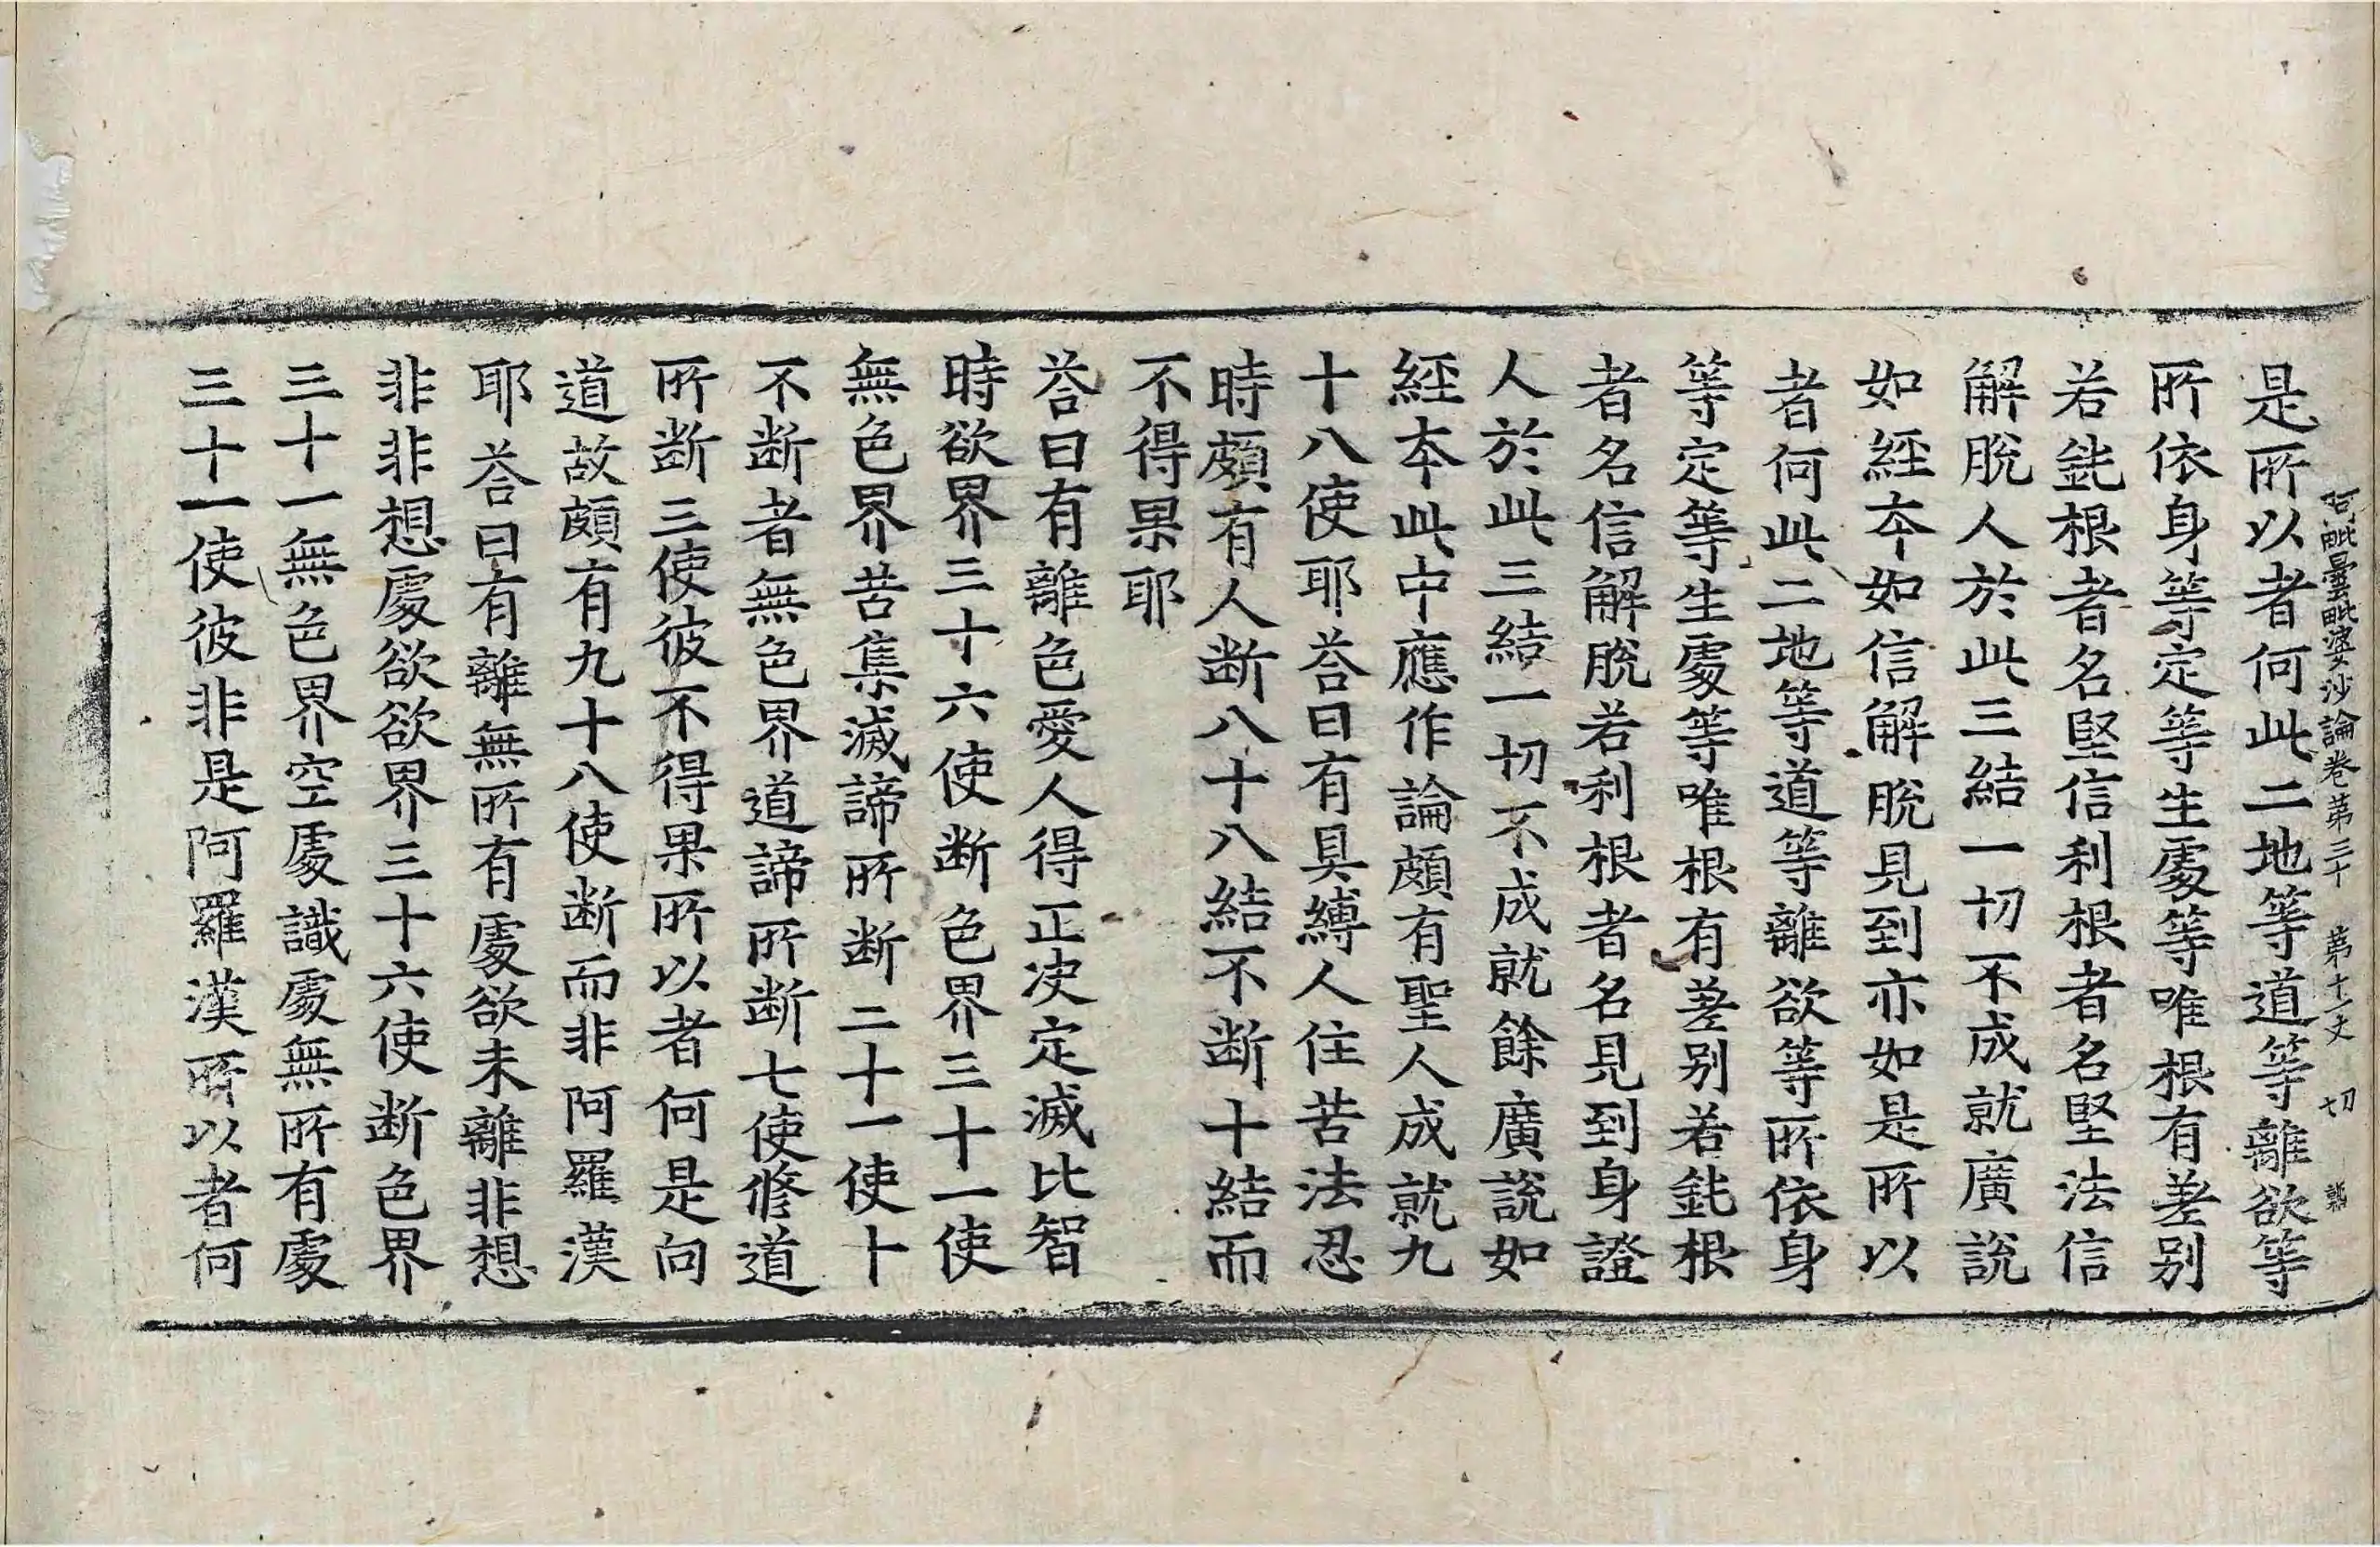 阿毗曇毗婆沙論卷第三十 第十一丈 切
是所以者何此二地等道等離欲等
所依身等定等生處等唯根有差别
若鈍根者名堅信利根者名堅法信
解脫人於此三結一切不成就廣說
如經本如信解脫見到亦如是所以
者何此二地等道等離欲等所依身
等定等生處等唯根有差别若鈍根
者名信解脫若利根者名見到身證
人於此三結一切不成就餘廣說如
經本此中應作論頗有聖人成就九
十八使耶荅曰有具縛人住苦法忍
時頗有人断八十八結不断十結而
不得果耶
荅曰有離色愛人得正决定滅比智
時欲界三十六使断色界三十一使
無色界苦集滅諦所断二十一使卜
不断者無色界道諦所断七使修道
所断三使彼不得果所以者何是向
道故頗有九十八使断而非阿羅漢
耶荅曰有離無所有處欲未離非想
非非想處欲欲界三十六使断色界
三十一無色界空處識處無所有處
三十一使彼非是阿羅漢所以者何